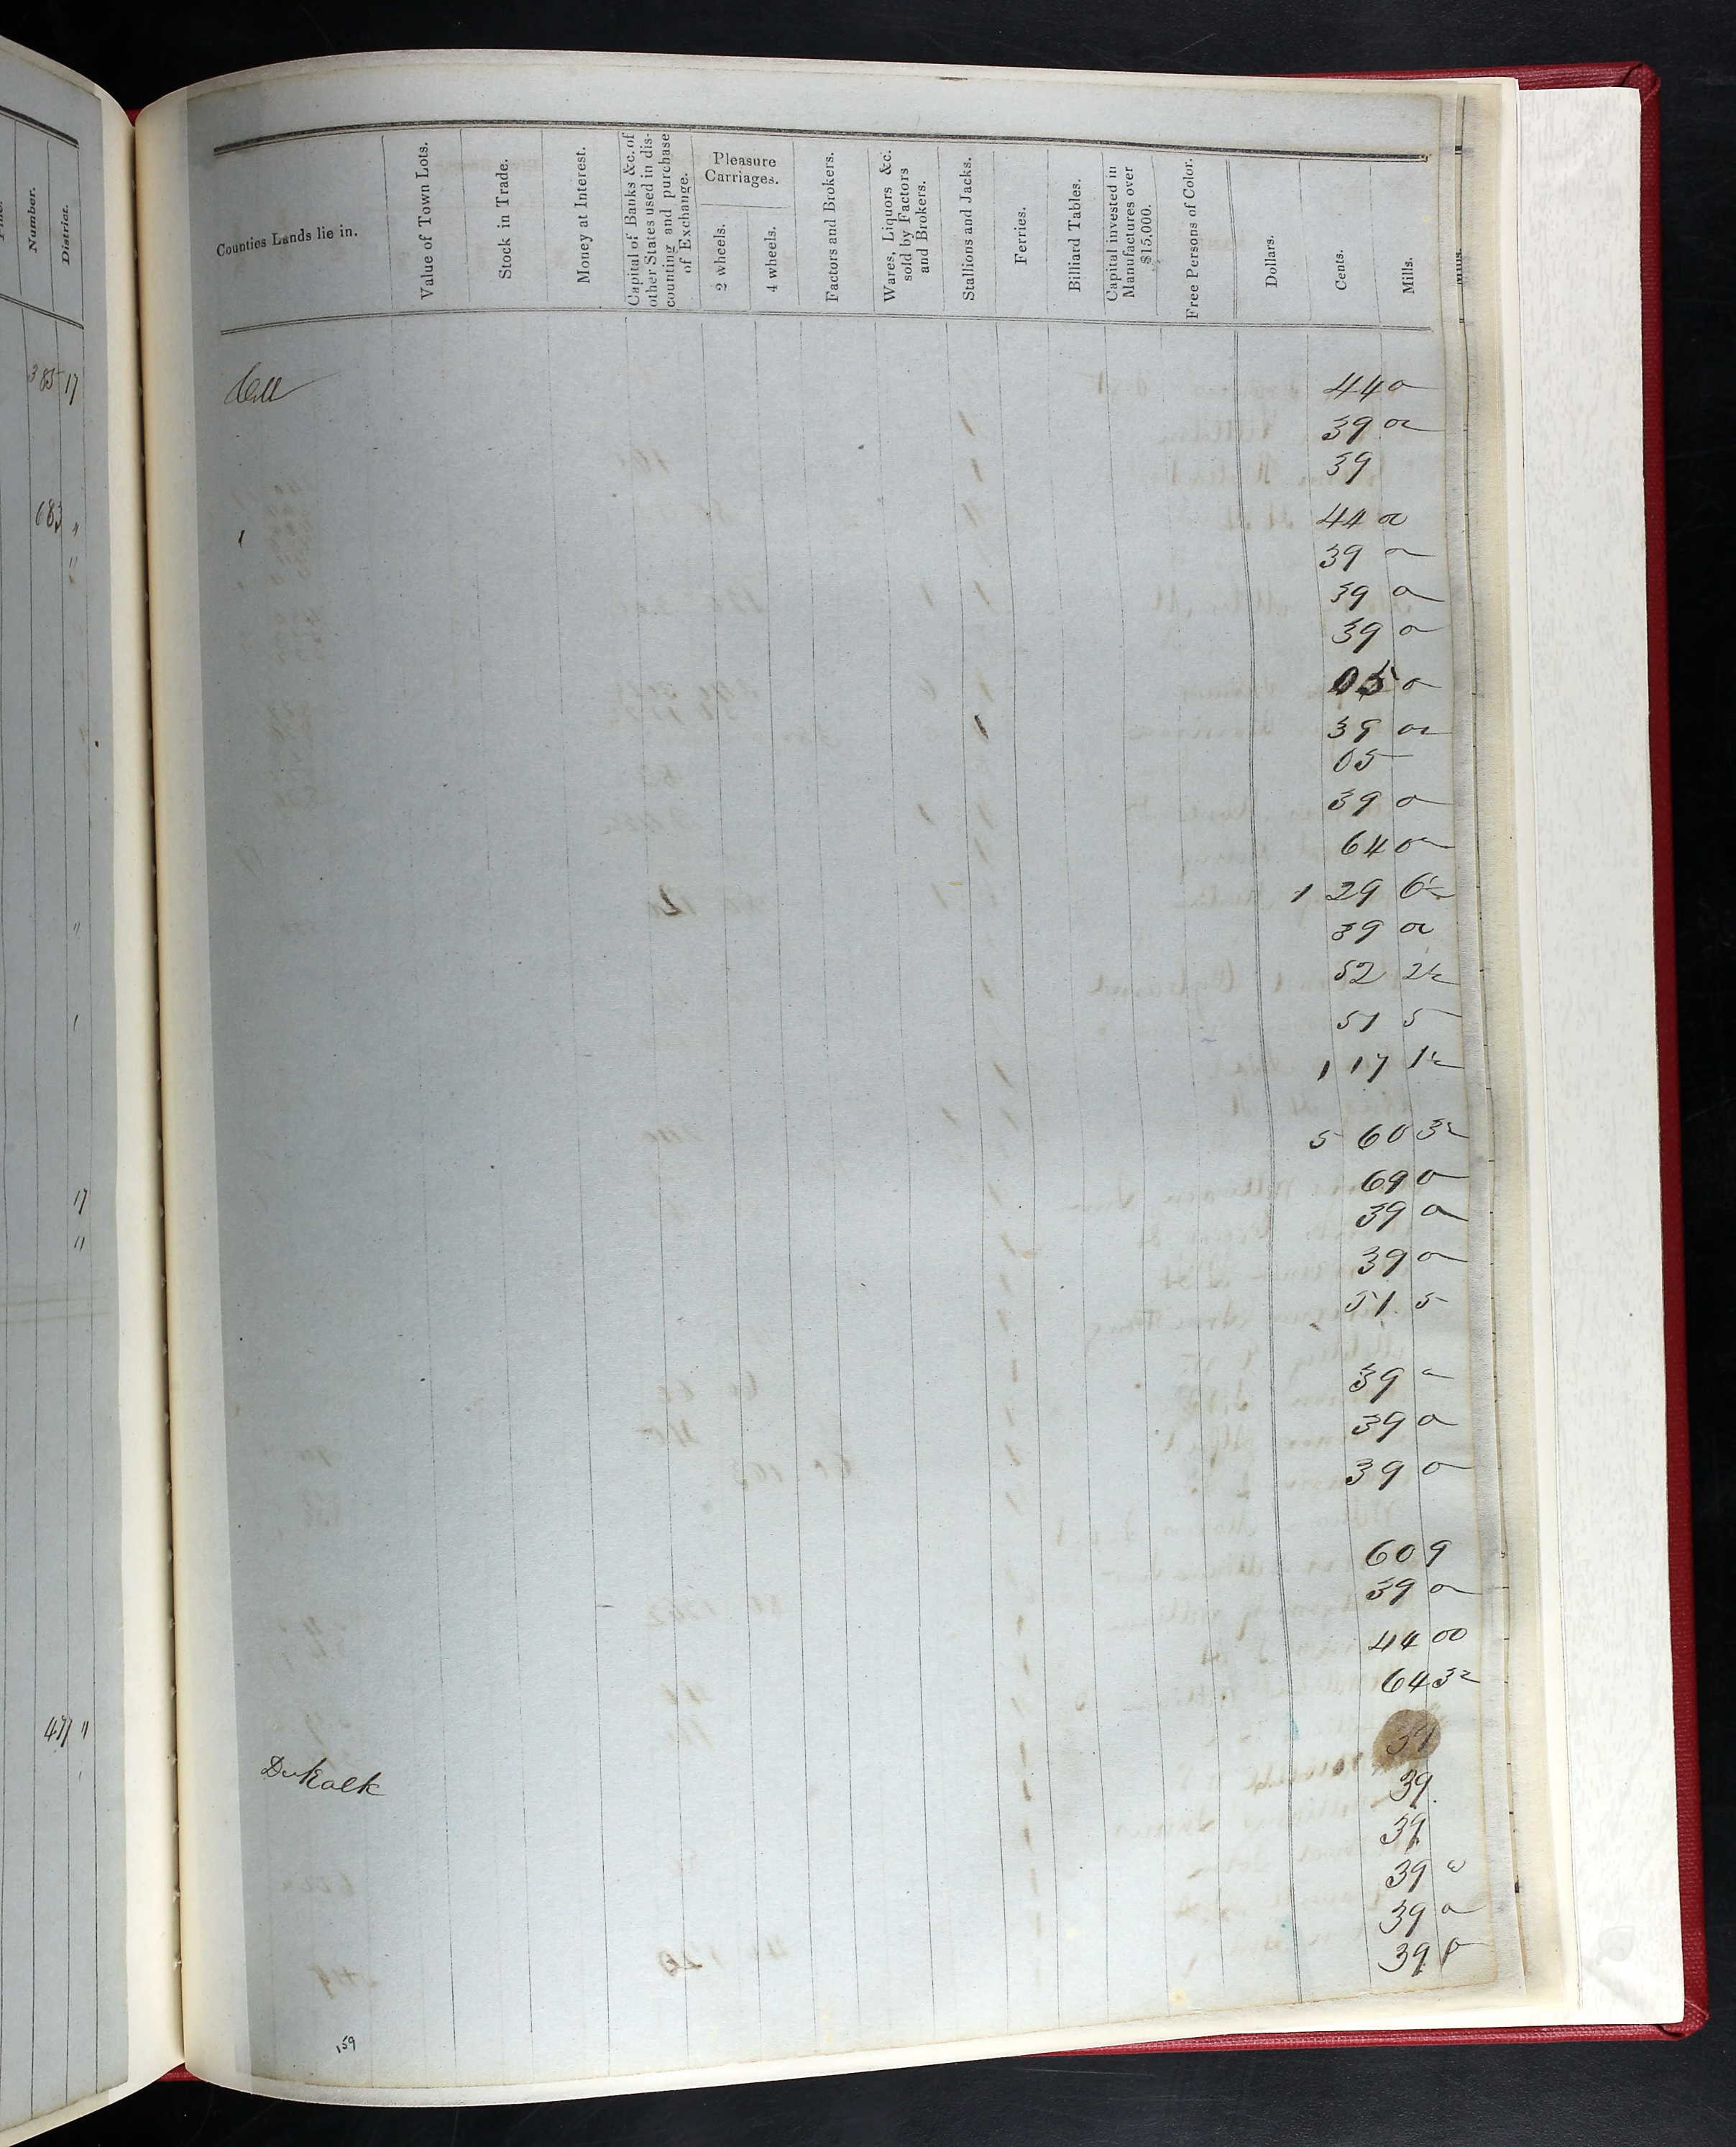 Number.
District.
Counties Lands lie in.
Value of Town Lots.
Stock in Trade.
Money at Interest.
Capital of Banks &c. of
other States used in dis-
counting and purchase
of Exchange.
Pleasure
Carriages.
2 wheels.
4 wheels.
Factors and Brokers.
Wares, Liquors &c.
sold by Factors
and Brokers.
Stallions and Jacks.
Ferries.
Billiard Tables.
Capital invested in
Manufactures over
$15,000.
Free Persons of Color.
Dollars.
Cents.
Mills.
385 17
44 0
39 0
39
683 "
44 0
39 0
39 0
39 0
05 0
39 0
05
39 0
64 0
1 29 6½
39 0
52 2½
51 5
1 17 1½
5 60 3½
17
69 0
39 0
"
39 0
51 5
39 0
39 0
39 0
60 9
39 0
44 00
64 3½
477 "
39
DeKalk
39
39
39 0
39 0
39 0
159